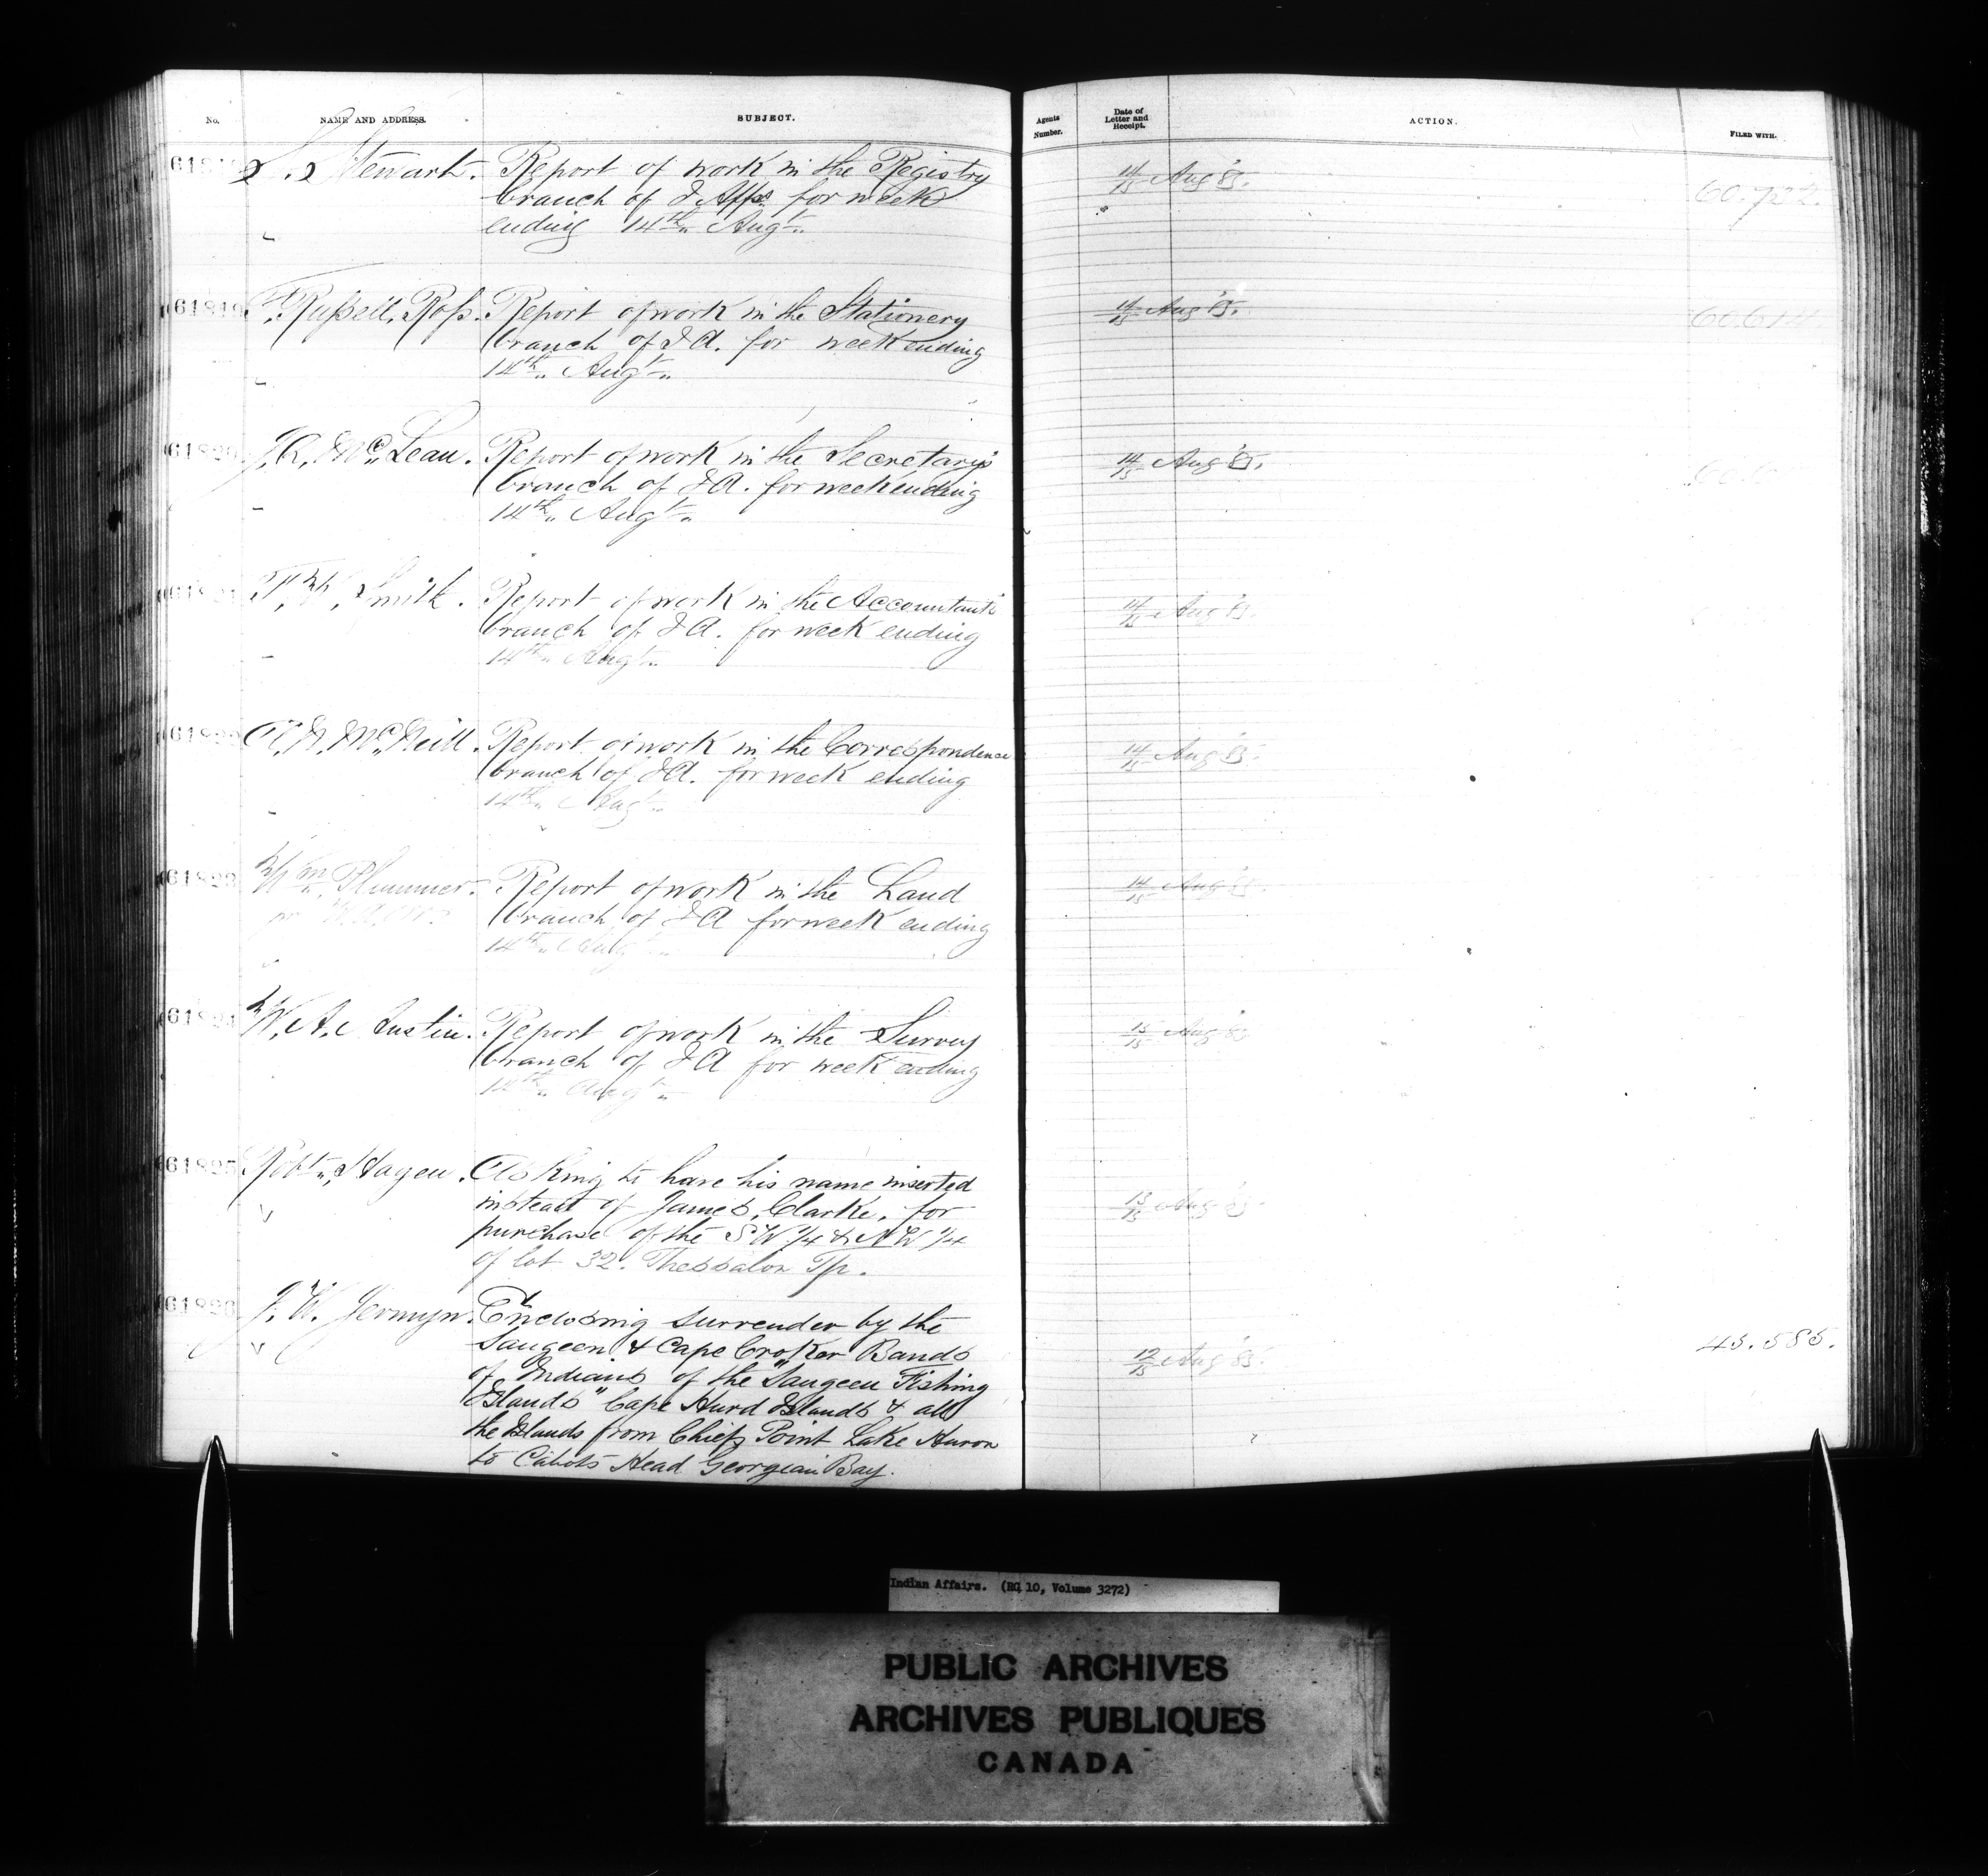 No.
NAME AND ADDRESS.
SUBJECT.
Agents Number.
Date of Letter and Receipt.
ACTION.
FILED WITH.
S. Stewart. Report of work in the Registry 14/15 Aug '85.
branch of I. Affs. for week
ending 14th Augt.
61819 F. Russell, Ross. Report of work in the Stationery 14/15 Aug '85. 60.614
branch of I A. for week ending
14th Augt.
61820 J. A. McLean. Report of work in the Secretary's 14/15 Aug '85.
branch of I A. for week ending
14th Augt.
61821 F. W. Smith. Report of work in the Accountant's 14/15 Aug '85.
branch of I A. for week ending
14th Augt.
61822 A. N. McNeill. Report of work in the Correspondence 14/15 Aug '85.
branch of I A. for week ending
14th Augt.
61823 Wm. Plummer. Report of work in the Land 14/15 Aug '85.
branch of I A for week ending
14th Augt.
61824 W. A. Austin. Report of work in the Survey 15/15 Aug 85
branch of I A for week ending
14th Augt.
61825 Robt. Hagen. Asking to have his name inserted
instead of James, Clarke, for 13/15 Aug 85.
purchase of the S W 1/4 & N W 1/4
of lot 32. Thessalon Tp.
61826 J. W. Jermyn. Enclosing surrender by the
Saugeen & Cape Croker Bands 12/15 Aug '85. 43.585.
of Indians of the "Saugeen Fishing
Islands" Cape Hurd Islands & all
the Islands from Chiefs Point Lake Huron
to Cabots Head Georgian Bay.
Indian Affairs. (RG 10, Volume 3272)
PUBLIC ARCHIVES
ARCHIVES PUBLIQUES
CANADA